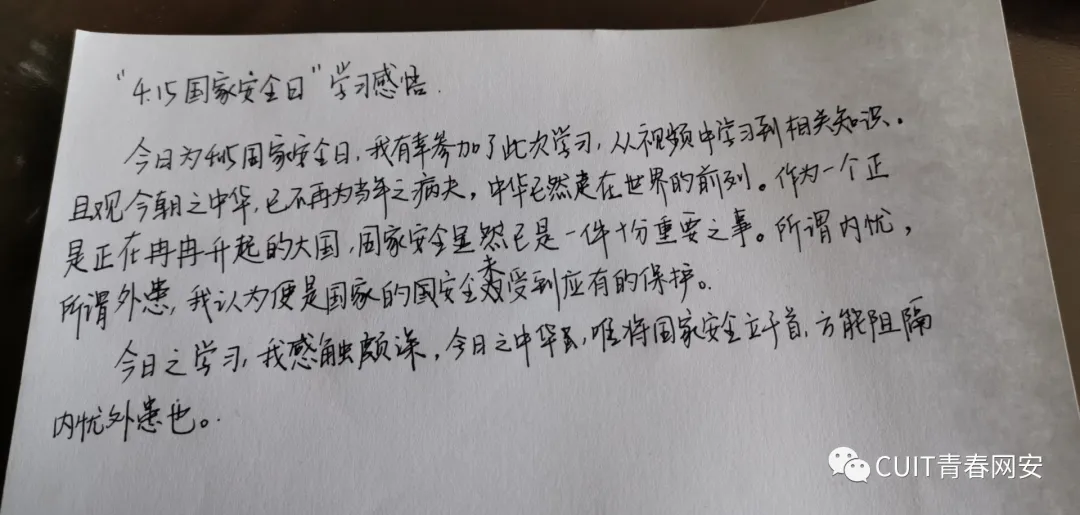 “4.15国家安全日”学习感悟.
今日为415国家安全日,我有幸参加了此次学习,从视频中学习到相关知识。
且观今朝之中华,已不再为当年之病夫,中华已然走在世界的前列。作为一个正
是正在冉冉升起的大国,国家安全显然已是一件十分重要之事。所谓内忧,
所谓外患,我认为便是国家的国安全未受到应有的保护。
今日之学习,我感触颇深,今日之中华,唯将国家安全立于首,方能阻隔
内忧外患也。
CUIT青春网安